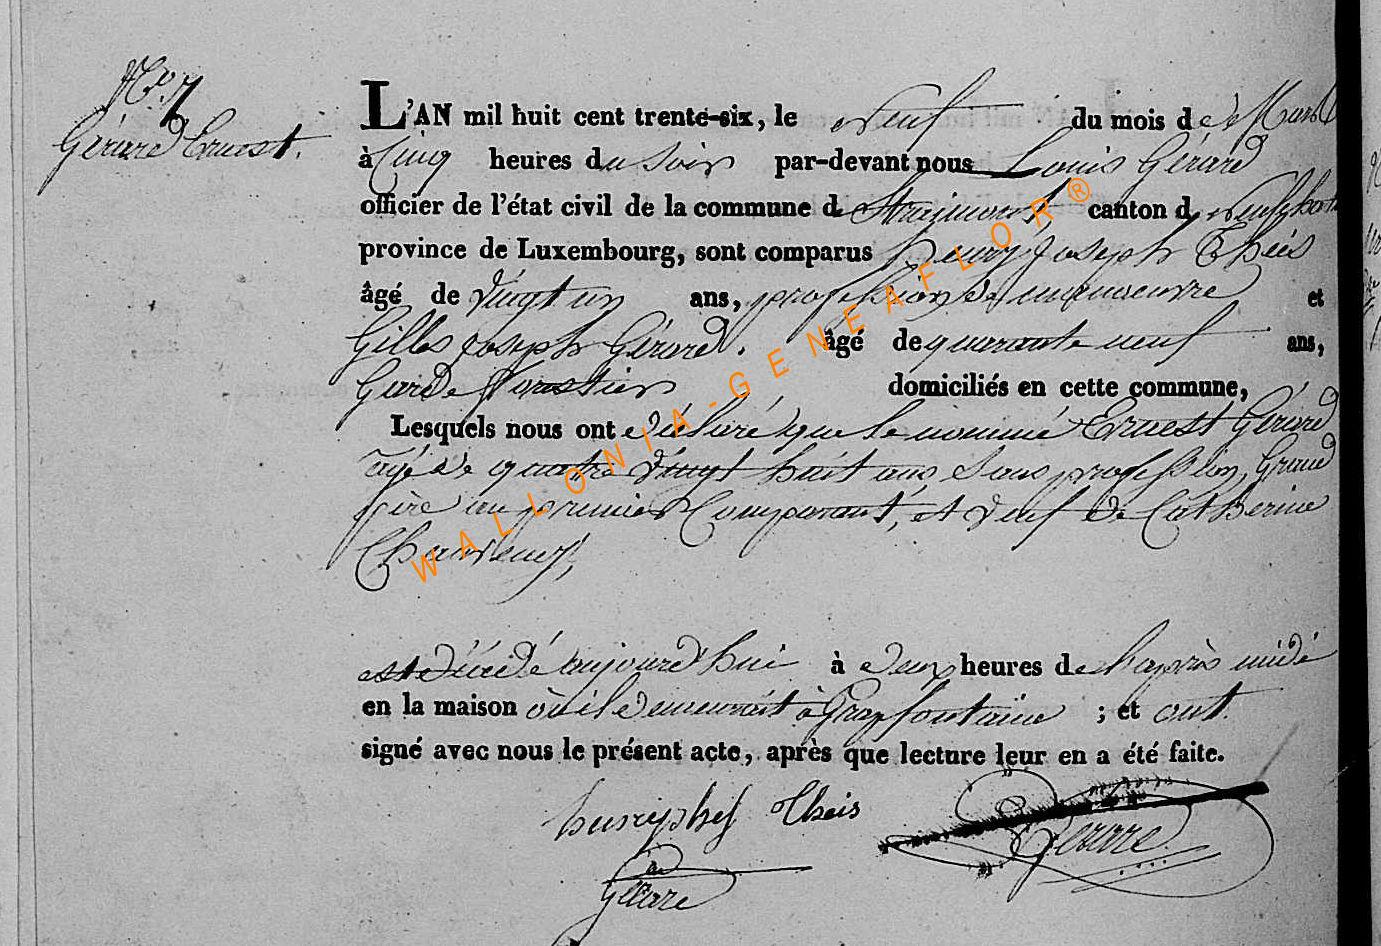 N° 7
Gérard Ernest.
L'AN mil huit cent trente-six, le neuf du mois de Mars
à Cinq heures du soir par-devant nous Louis Gérard
officier de l'état civil de la commune de Straimont, canton de
province de Luxembourg, sont comparus henry joseph Theis
âgé de Vingt un ans, profession de manoeuvre et
Gilles joseph Gérard. âgé de quarante neuf ans,
Garde forestier domiciliés en cette commune,
Lesquels nous ont déclaré que le nommé Ernest Gérard
agé de quatre Vingt huit ans Sans profession, Grand
père au premier Comparant, et veuf de Catherine
est décédé aujourd'hui à deux heures de l'après midi
en la maison où il demeurait à Grapfontaine ; et ont
signé avec nous le présent acte, après que lecture leur en a été faite.
Theis
Gerard
Gérard
WALLONIA-GENEAFLOR®